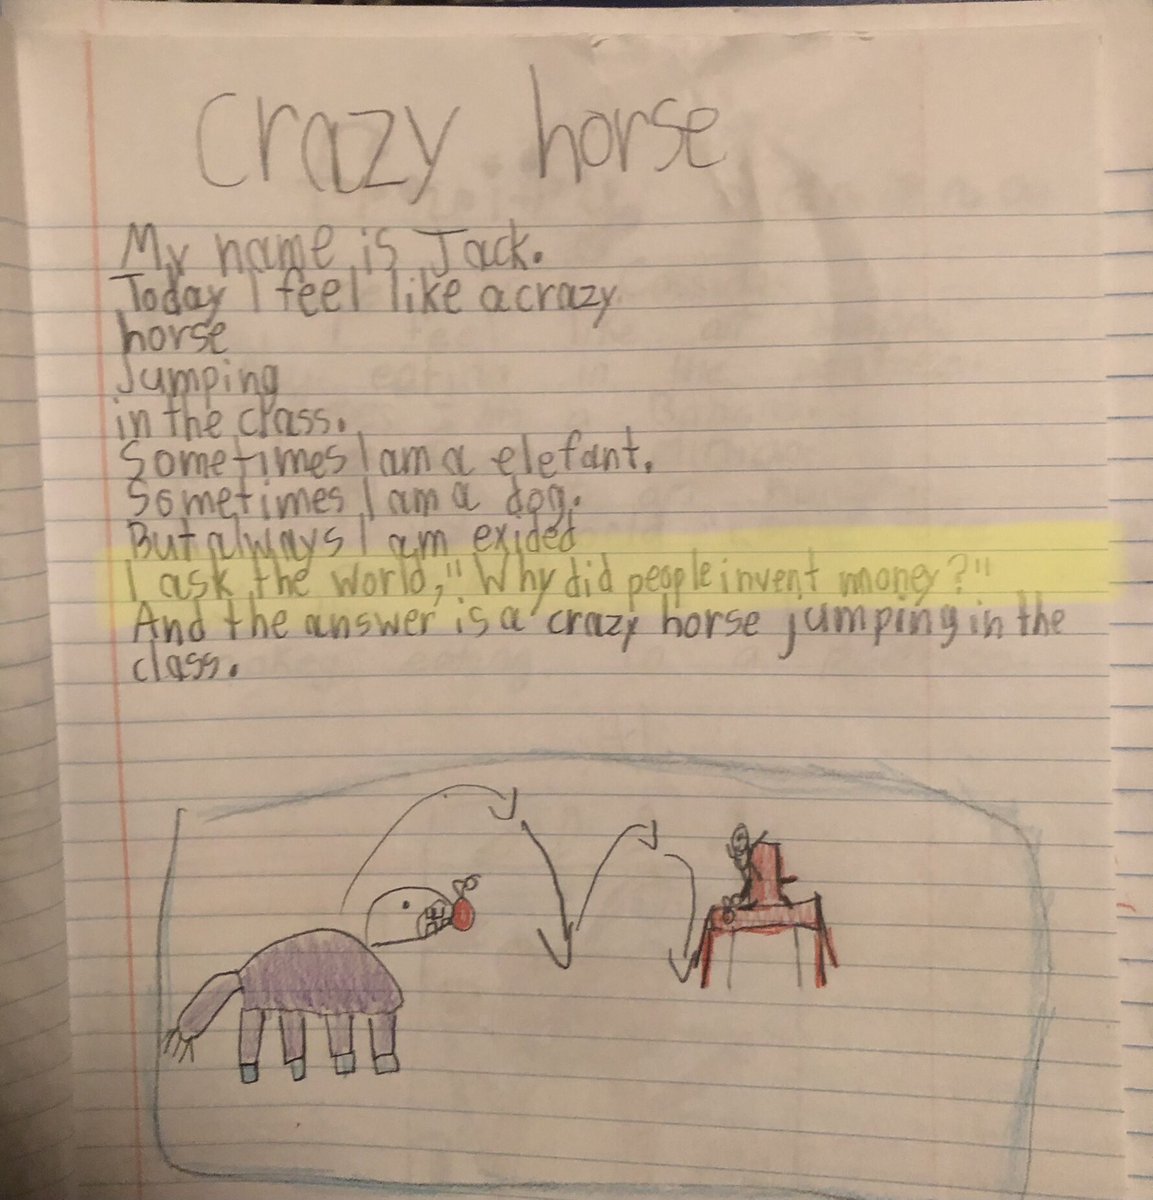 Crazy horse
My name is Jack.
Today I feel like a crazy
horse
Jumping
in the class.
Sometimes I am a elefant.
Sometimes I am a dog.
But always I am exided
I ask the world, "Why did people invent money?"
And the answer is a crazy horse jumping in the
class.